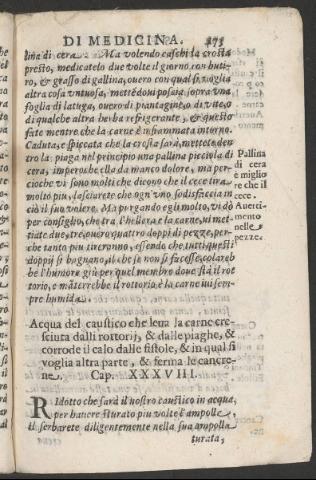 DI MEDICINA. 173
lina di cera. Ma volendo caschi la crosta
presto, medicatelo due volte il giorno con buti-
ro, & grasso di gallina, ouero con qual si voglia
altra cosa vntuosa, mettēdoui posaia sopra vna
foglia di latuga, ouero di piantagine, o di vite, o
di qualche altra herba refrigerante, & questo
fate mentre che la carne è infiammata intorno.
Caduta, e spiccata che la crosta sarà, mettete den
tro la piaga nel principio una pallina picciola di
cera, imperoche ella da manco dolore, ma per-
cioche vi sono molti che dicono che il cece tira
molto piu, lasciarete che ogn'vno sodisfaccia in
ciò il suo volere. Ma purgando egli molto, vi dò
per consiglio, che tra l'hellera, e la carne, ui met-
tiate due, tre, ouero quattro doppi di pezze, per-
che tanto piu tireranno, essendo che tutti questi
doppij si bagnano, il che se non si facesse, colarab
be l'humore giù per quel membro doue stà il rot
torio, e māterrebbe il rottorio, e la carne iui sem-
pre humida.
Pallina
di cera
è miglio
re che il
cece.
Auerti-
mento
nelle
pezze.
Acqua del caustico che leua la carne cre-
sciuta dalli rottorij, & dalle piaghe, &
corrode il calo dalle fistole, & in qual si
voglia altra parte, & ferma le cancre-
ne. Cap. XXXVIII.
RIdotto che sarà il uostro caustico in acqua,
per hauere sturato piu volte l'ampolle,
il serbarete diligentemente nella sua ampolla
turata,